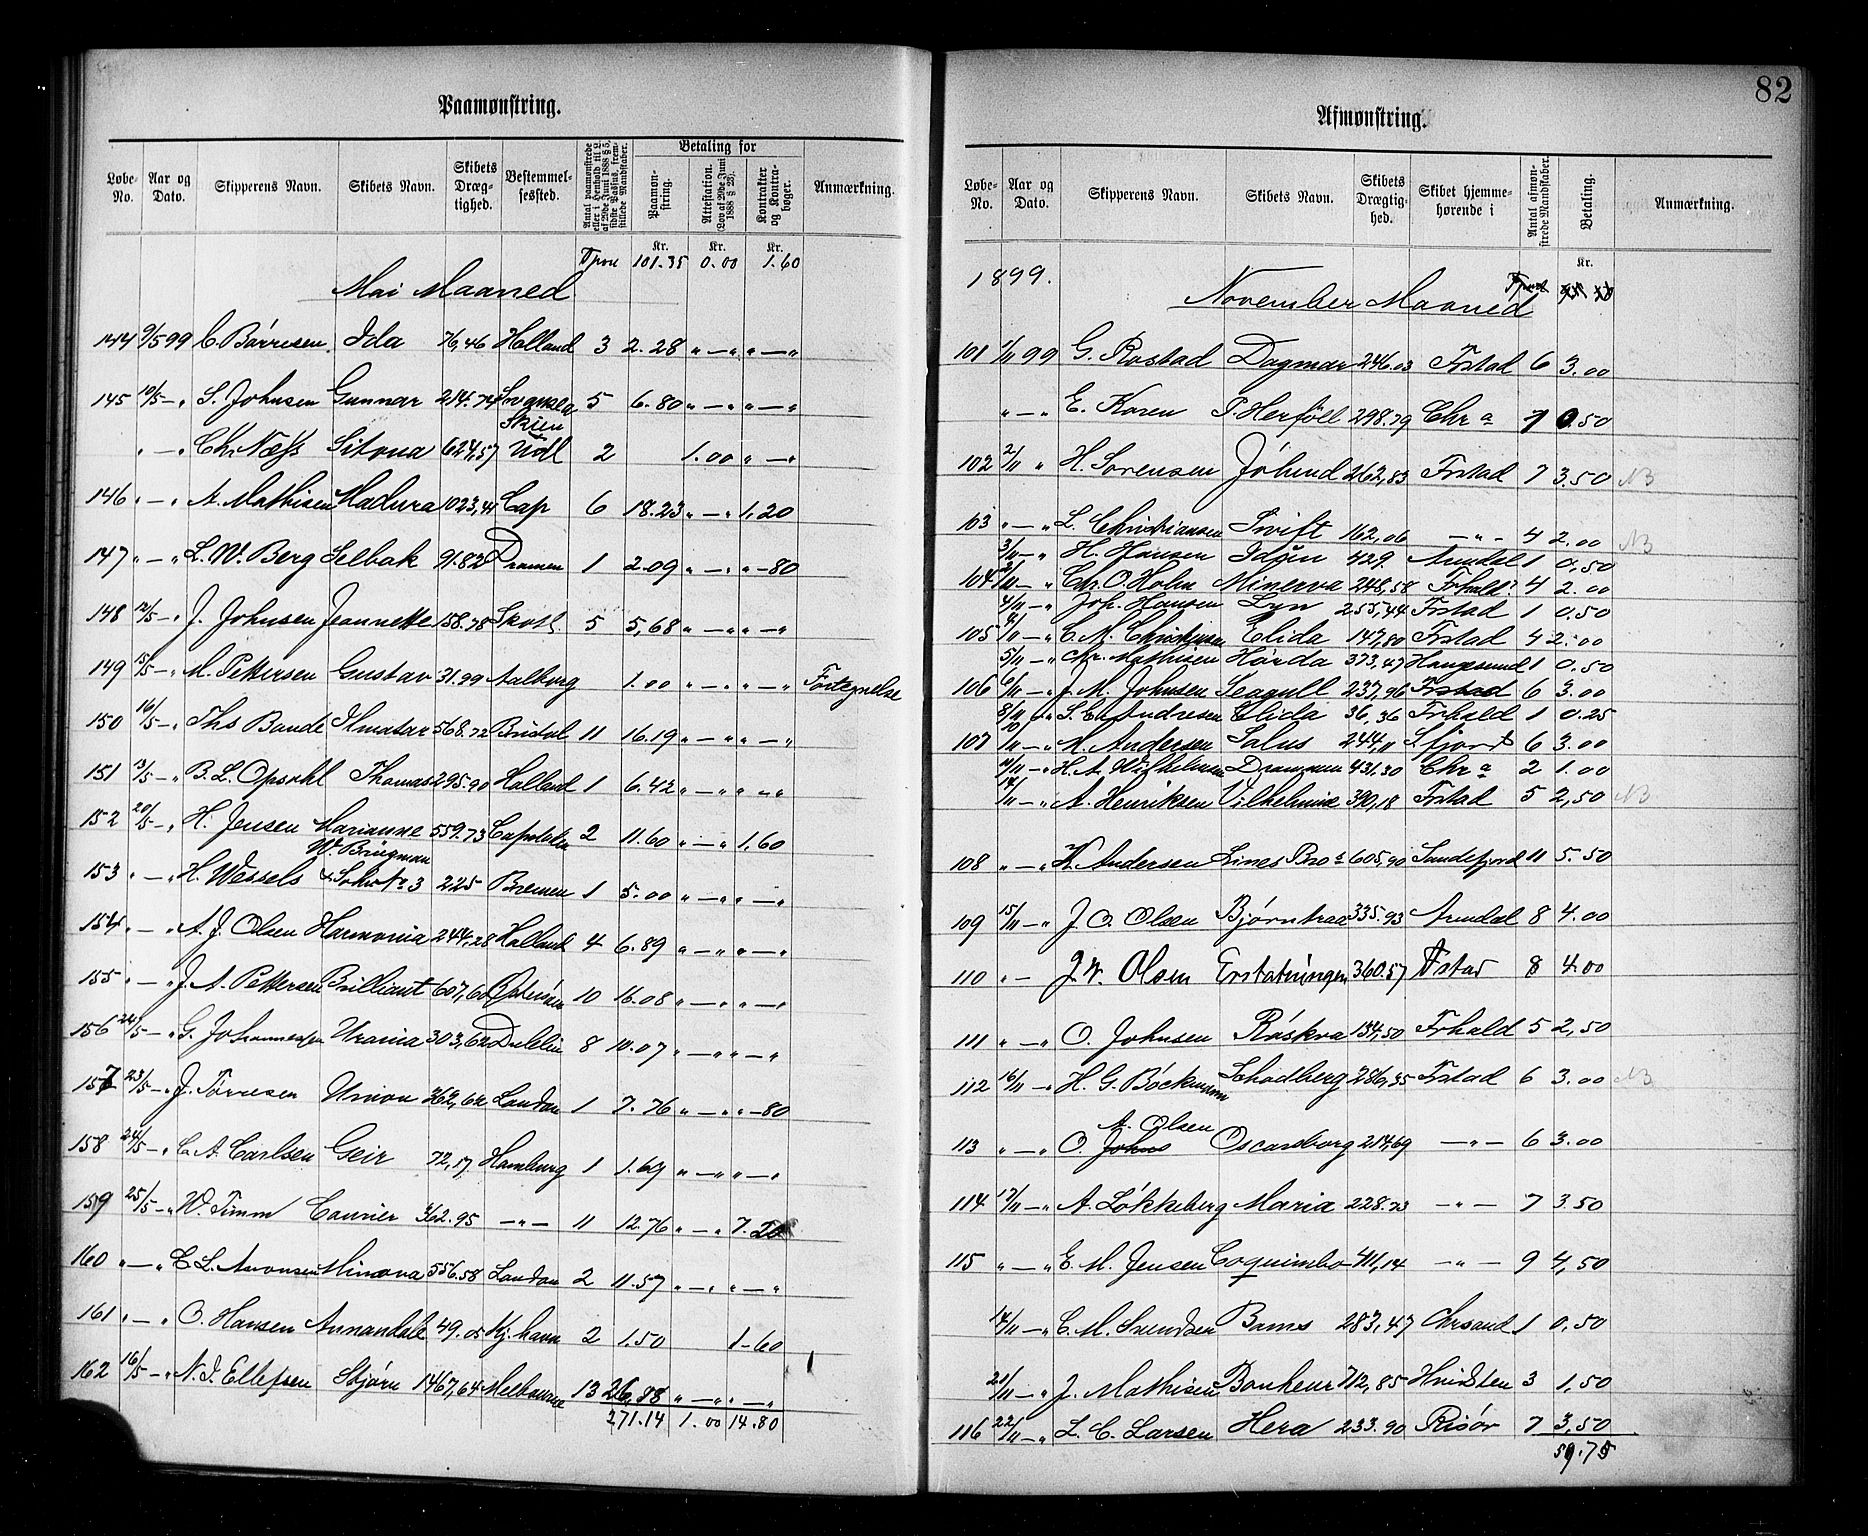 Paamønstring.
Løbe-No. Aar og Dato. Skipperens Navn. Skibets Navn. Skibets Dræg-tighed. Bestemmel-sessted. Antal paamønstrede eller i Henhold til L. af 29de Juni 1888 § 5, sidste Passus, frem-stillede Mandskaber. Betaling for Paamøn-string. Attestation. (Lov af 29de Juni 1888 § 23). Kontrakter og Kontra-bøger. Anmærkning.
Kr. Kr. Kr.
Tpore 101.35 0.00 1.60
Mai Maaned
144 9/5 99 C. Børresen Ida 76,46 Holland 3 2.28 " — " " — "
145 10/5 — " S. Johnsen Gunnar 214.74 5 6.80 " — " " — "
Skien
" — " Chr Næss Sitona 624,57 Udl 2 1.00 " — "
146 " — " A. Mathisen Madura 1023,41 Cap 6 18.23 " — " 1.20
147 " — " L. W. Berg Selbak 91.82 Dramen 1 2.09 " — " " -80
148 12/5 — " J. Johnsen Jeannette 158.78 Skotl. 5 5,68 " — " " — "
149 15/5 — " M. Pettersen Gustav 31.99 Aalborg 1.00 " — " " — " Fortegnelse
150 16/5 — " Ths Bande Ilmatar 568.72 Bristol 11 16.19 " — " " — "
151 /5 — " B. L. Opsahl Thomas 295.90 Holland 1 6.42 " — " " — "
152 20/5 — " H. Jensen Marianne 559.73 2 11.60 " — " 1.60
W. Brügman
153 " — " H. Wessels & Sohn No 3 225 Bremen 1 5.00 " — " " — "
154 " — " A. J. Olsen Harmonia 244,28 Holland 4 6.89 " — " " — "
155 " — " J. A. Pettersen Brilliant 607,60 10 16.08 " — " " — "
156 22/5 — " G. Johannessen Urania 303,62 Dublin 8 10.07 " — " " — "
157 23/5 — " J. Tørresen Union 262,62 London 1 7.76 " — " " -80
158 24/5 — " C. A. Carlsen Geir 72,17 Hamburg 1 1.69 " — " " — "
159 25/5 — " W. Timm Courier 362.95 — " — 11 12.76 " — " 7.20
160 " — " C. L. Aronsen Minona 556.58 London 2 11.57 " — " " — "
161 " — " O. Hansen Annandale 49.05 Kj.havn 2 1.50 1-60
162 16/5 — " N. J. Ellefsen Stjørn 1467,64 Melbourne 13 26,88 " — " " — "
271.14 1.00 14.80
82
Afmønstring.
Løbe-No. Aar og Dato. Skipperens Navn. Skibets Navn. Skibets Drægtig-hed. Skibet hjemme-hørende i Antal afmøn-strede Mandskaber. Betaling. Anmærkning.
Kr.
1899.
November Maaned
101 1/11 99 G. Rostad Dagmar 246.03 Frstad 6 3.00
" — " E. Koren P. Herföll 298.79 Chr a 1 0.50
102 2/11 " H. Sorensen Jøhund 262,83 Frstad 7 3.50 NB
103 " — " L. Christiansen Swift 162,06 — " — 4 2.00 NB
3/11 — " H. Hansen Idun 429. Arendal 1 0.50
104 /11 — " Chr. O. Holm Minerva 248,58 Frhald 4 2.00
4/11 — " Joh. Hansen Lyn 255,44 Frstad 1 0.50
105 /11 — " C. M. Christensen Elida 147,80 Frstad 4 2.00
5/11 — " Chr. Mathisen Hørda 373,47 Haugesund 1 0.50
106 6/11 — " J. M. Johnsen Seagull 237,96 Frstad 6 3.00
8/11 — " S. Chr. Andresen Elida 36,36 Frhald 1 0.25
107 10/11 — " M. Andersen Salus 244,11 S.fjord 6 3.00
/11 — " H. A. Wilhelmsen Drammen 431,30 Chr a 2 1.00
14/11 — " A. Henriksen Vilhelmine 390,18 Frstad 5 2,50 NB
108 " — " K. Andersen Lines Bro s 605,90 Sandefjord 11 5.50
109 15/11 — " J. O. Olsen Bjørnhaa 335.93 Arendal 8 4.00
110 " — J. W. Olsen Erstatningen 360.57 Fstad 8 4.00
111 " — " O. Johnsen Røskva 134,50 Frhald 5 2,50
112 16/11 — " H. G. Böckmann Schodberg 286,35 Frstad 6 3.00 NB
A. Olsen
113 " — " O. Johns Oscarsborg 214,69 — " — 6 3.00
114 17/11 — " A. Løkkeberg Maria 228.73 — " — 7 3.50
115 " — " E. M. Jensen Coquimbo 411,14 — " — 9 4,50
/11 — " C. M. Svendsen Bams 283,47 Chrsand 1 0.50
21/11 — " J. Mathisen Bonheur 712,85 Hvidsten 3 1,50
116 22/11 — " L. C. Larsen Hera 233.90 Risør 7 3,50
59.75